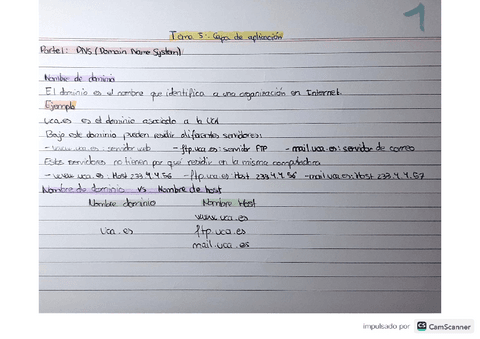 1
Tema 5: Capa de aplicación
Parte 1: DNS (Domain Name System)
Nombre de dominio
El dominio es el nombre que identifica a una organización en Internet.
Ejemplo
uca.es es el dominio asociado a la UCA
Bajo este dominio pueden residir diferentes servidores:
- www.uca.es: servidor web - ftp.uca.es: servidor FTP - mail.uca.es: servidor de correo
Estos servidores no tienen por qué residir en la misma computadora
- www.uca.es: Host 233.4.4.56 - ftp.uca.es Host 233.4.4.56 - mail.uca.es: Host 233.4.4.57
Nombre de dominio vs Nombre de host
Nombre dominio Nombre Host
www.uca.es
uca.es ftp.uca.es
mail.uca.es
impulsado por CS CamScanner